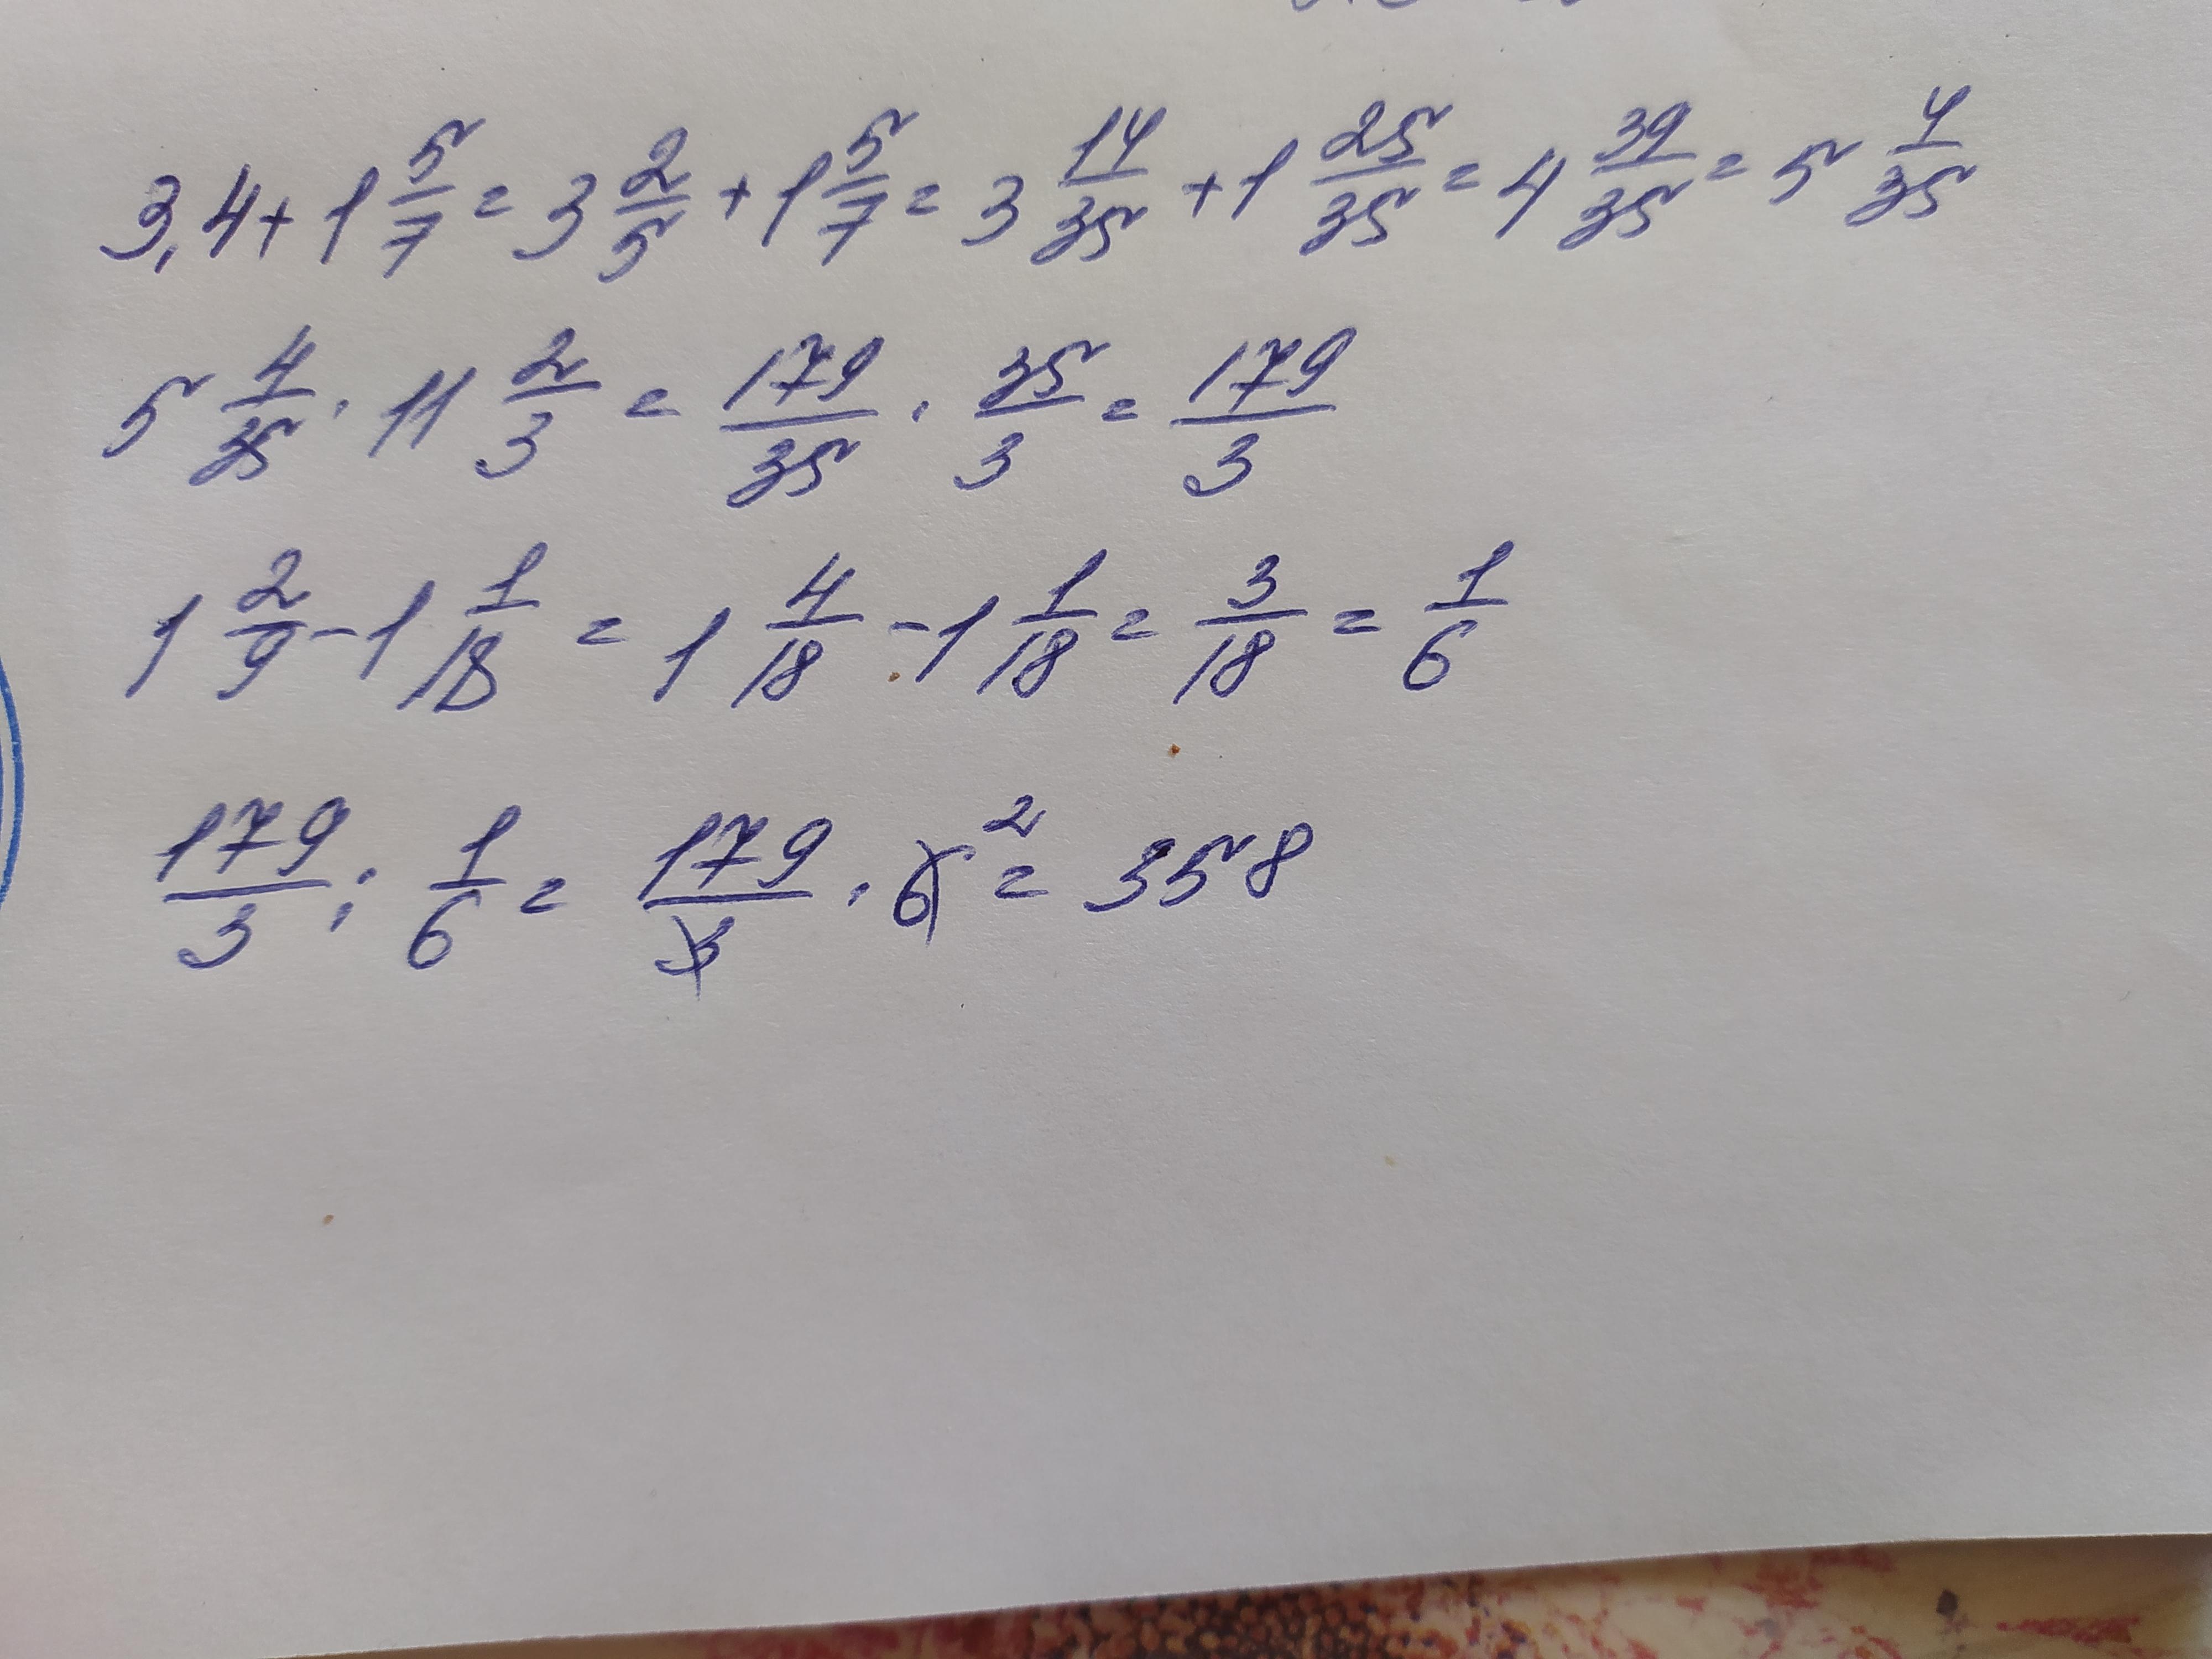 3,4 + 1 5/7 = 3 2/5 + 1 5/7 = 3 14/35 + 1 25/35 = 4 39/35 = 5 4/35
5 4/35 · 11 2/3 = 179/35 · 35/3 = 179/3
1 2/9 - 1 1/18 = 1 4/18 - 1 1/18 = 3/18 = 1/6
179/3 : 1/6 = 179/3 · 6 2 = 358